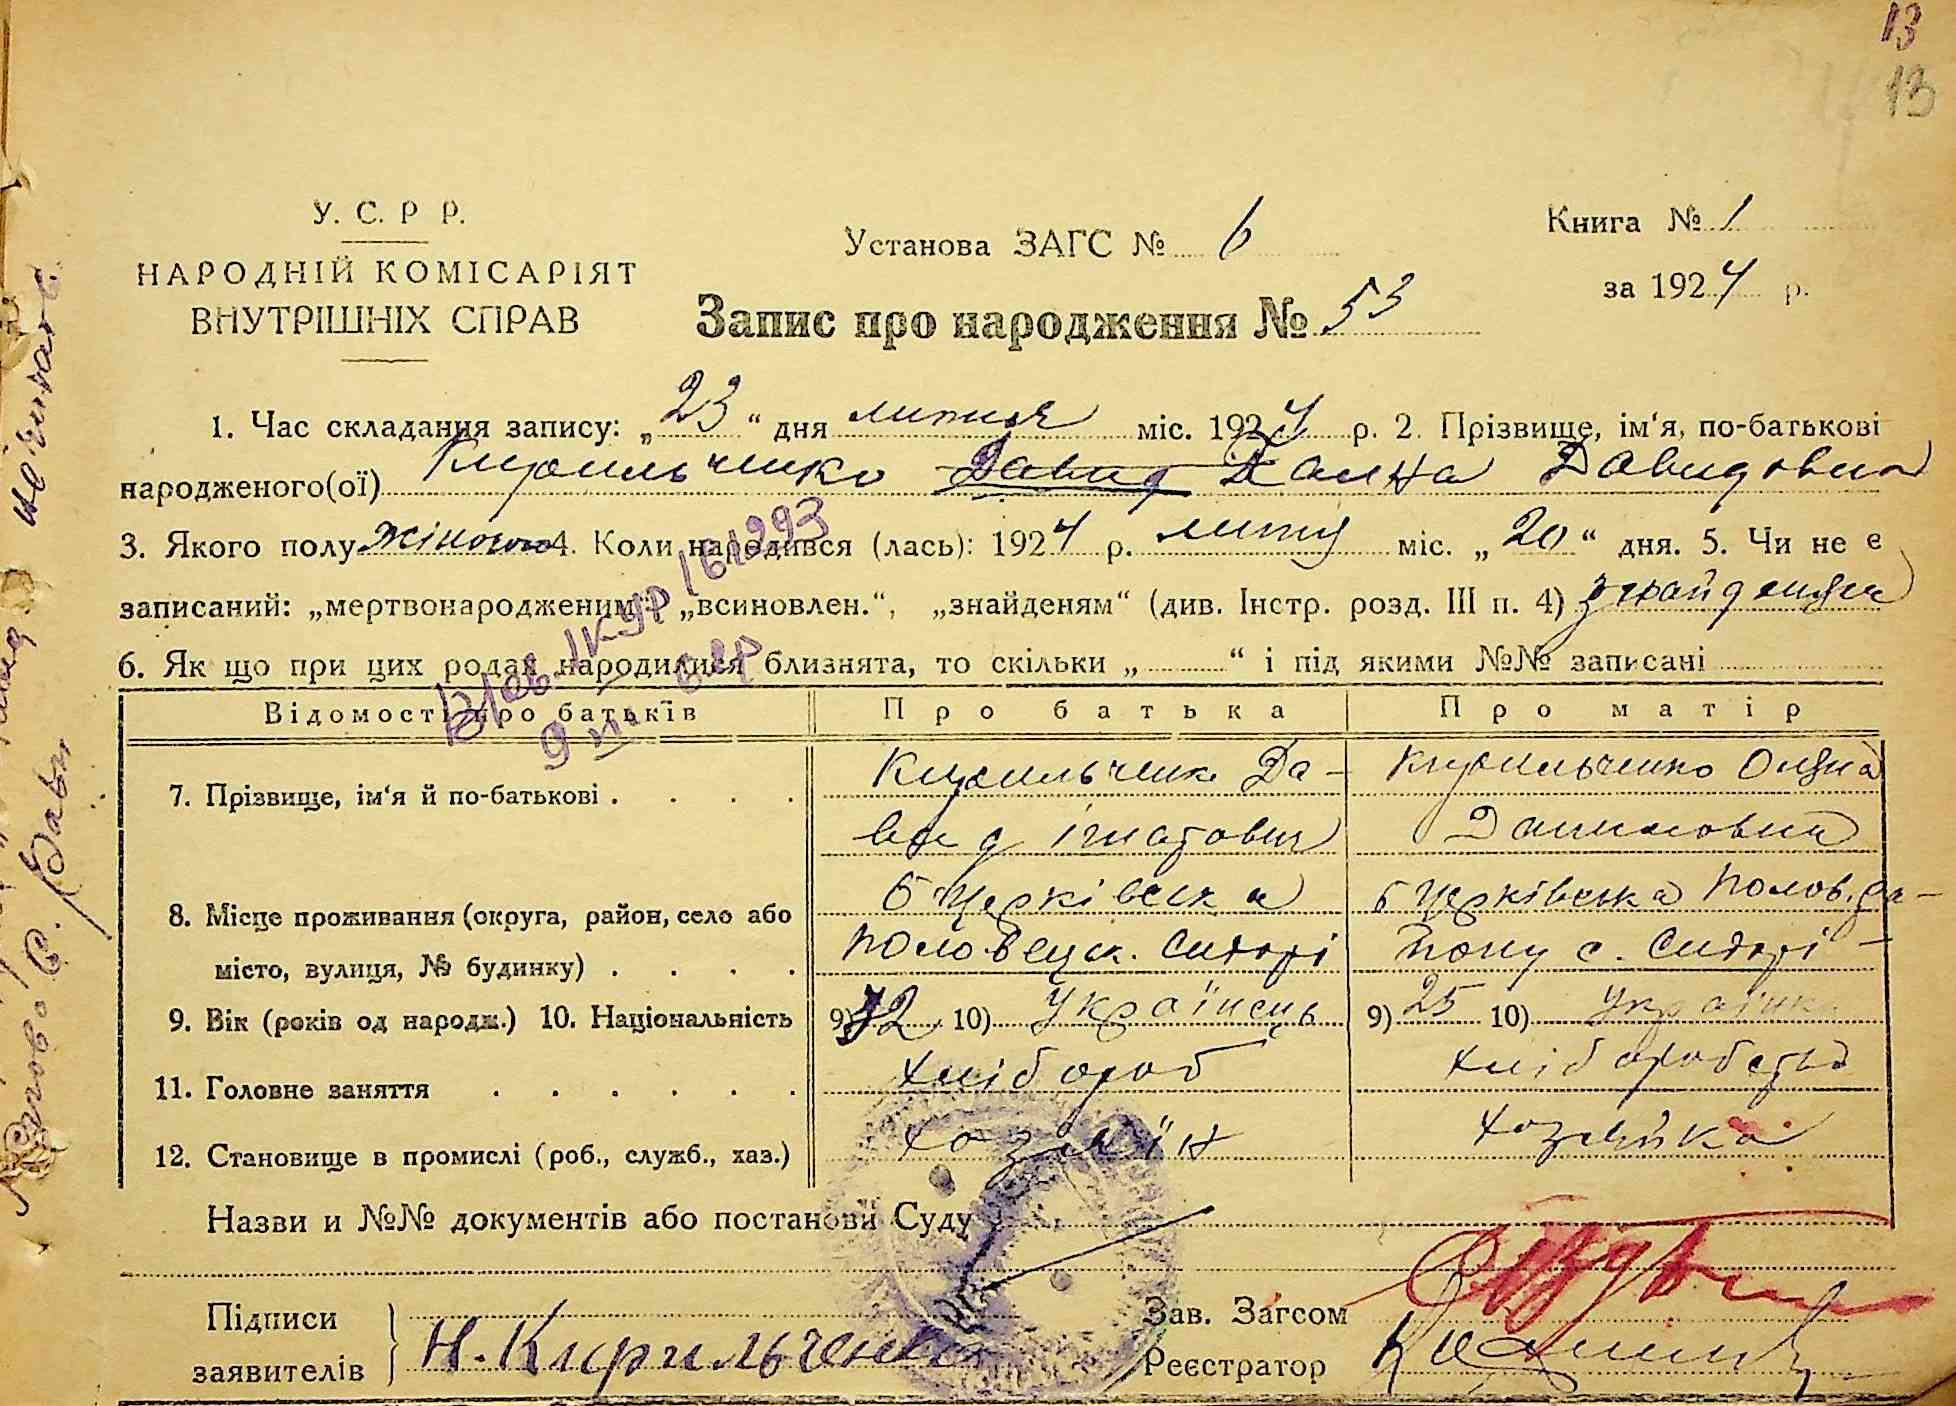 13
13
У. С. Р Р.
НАРОДНІЙ КОМІСАРІЯТ
ВНУТРІШНІХ СПРАВ
Установа ЗАГС № 6
Книга № 1
за 1924 р.
Запис про народження № 53
1. Час складання запису: „23“ дня лютня міс. 1924 р. 2. Прізвище, ім‘я, по-батькові
народженого(ої) Кирильченко Давид Ганна Давидовна
3. Якого полу жіночого 4. Коли народився (лась): 1924 р. люту міс. „20“ дня. 5. Чи не є
записаний: „мертвонародженим“, „всиновлен.“, „знайденям“ (див. Інстр. розд. III п. 4) знайденям
6. Як що при цих родах народилися близнята, то скільки „ “ і під якими №№ записані
Відомості про батьків Про батька Про матір
7. Прізвище, ім‘я й по-батькові . . . . Кирильченк Да-
вид Ігнатович
Кирильченко Олена
8. Місце проживання (округа, район, село або
місто, вулиця, № будинку) . . . .
Б Церківська
Половецьк. Сидорі
Б Церківська Полов. ра-
йону с. Сидорі-
9. Вік (років од народж.) 10. Національність 9) 10) Українець 9) 25 10) Українка
11. Головне заняття . . . . . . хлібороб хлiборобство
12. Становище в промислі (роб., служб., хаз.) хозяїн хозяйка
Назви и №№ документів або постанови Суду
Підписи
заявителів
Н. Кирильченко
Зав. Загсом
Реєстратор